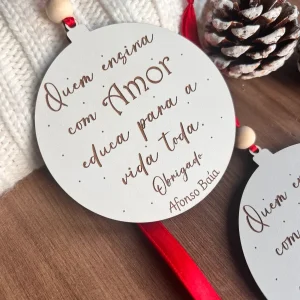 Quem ensina
com Amor
educa para a
vida toda.
Obrigado
Afonso Baía
Quem en
com
edu